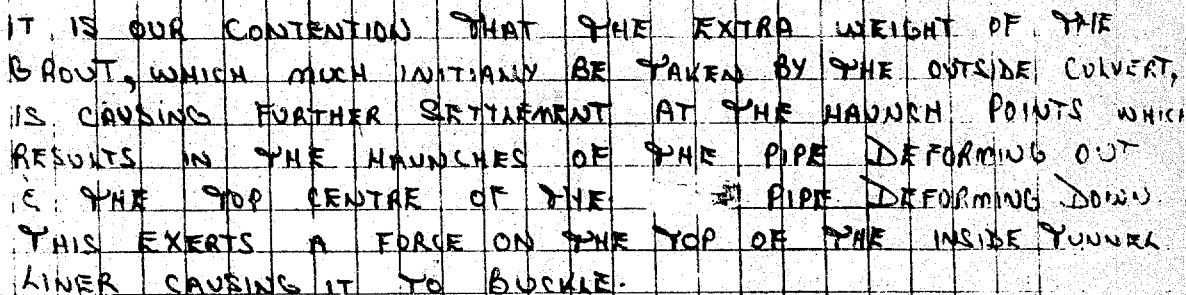 IT IS OUR CONTENTION THAT THE EXTRA WEIGHT OF THE
GROUT, WHICH MUCH INITIALLY BE TAKEN BY THE OUTSIDE CULVERT,
IS CAUSING FURTHER SETTLEMENT AT THE HAUNCH POINTS WHICH
RESULTS IN THE HAUNCHES OF THE PIPE DEFORMING OUT
& THE TOP CENTRE OF THE PIPE DEFORMING DOWN.
THIS EXERTS A FORCE ON THE TOP OF THE INSIDE TUNNEL
LINER CAUSING IT TO BUCKLE.